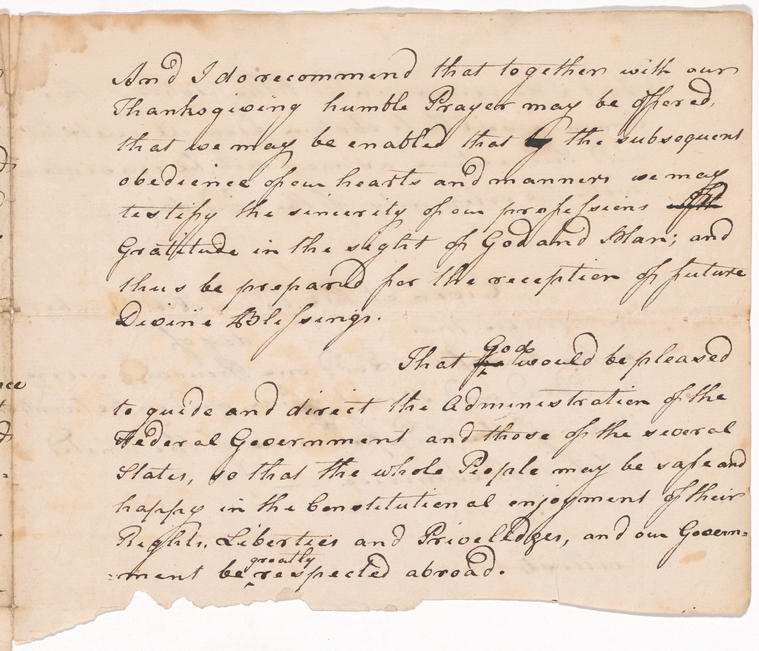 And I do recommend that together with our
Thanksgiving humble Prayer may be offered,
that we may be enabled that by the subsequent
obedience of our hearts and manners we may
testify the sincerity of our professions
Gratitude in the sight of God and Man; and
thus be prepared for the reception of future
Divine Blessings.
That God would be pleased
to guide and direct the Administration of the
Federal Government and those of the several
States, so that the whole People may be safe and
happy in the Constitutional enjoyment of their
Rights, Liberties and Priveledges, and our Govern=
=ment be greatly respected abroad.